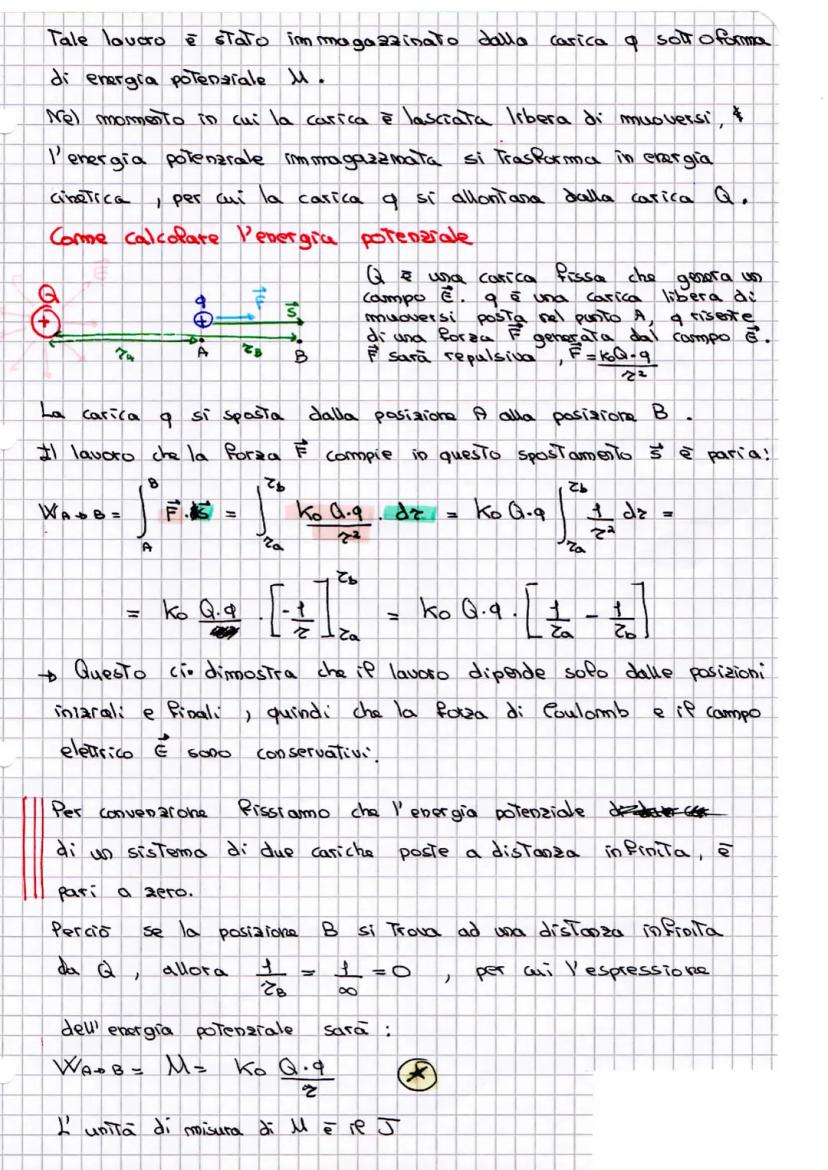 Tale lavoro è stato immagazzinato dalla carica q sottoforma
di energia potenziale U.
Nel momento in cui la carica è lasciata libera di muoversi,
l'energia potenziale immagazzinata si trasforma in energia
cinetica, per cui la carica q si allontana dalla carica Q.
Come calcolare l'energia potenziale
Q
+
q
+
F
S
r_A
A
r_B
B
Q è una carica fissa che genera un
campo E⃗. q è una carica libera di
muoversi posta nel punto A, q risente
di una forza F⃗ generata dal campo E⃗.
F⃗ sarà repulsiva, F⃗ = k₀Q·q / r²
La carica q si sposta dalla posizione A alla posizione B.
Il lavoro che la forza F⃗ compie in questo spostamento s⃗ è pari a:
W_A→B = ∫_A^B F⃗ · s⃗ = ∫_ra^rb k₀ Q·q / r² · dr = k₀ Q·q ∫_ra^rb 1/r² dr =
= k₀ Q·q · [-1/r]_ra^rb = k₀ Q·q · [1/ra - 1/rb]
→ Questo ci dimostra che il lavoro dipende solo dalle posizioni
iniziali e finali, quindi che la forza di Coulomb e il campo
elettrico E⃗ sono conservativi.
Per convenzione fissiamo che l'energia potenziale
di un sistema di due cariche poste a distanza infinita, è
pari a zero.
Perciò se la posizione B si trova ad una distanza infinita
da Q, allora 1/r_B = 1/∞ = 0, per cui l'espressione
dell'energia potenziale sarà:
W_A→B = U = k₀ Q·q / r
L'unità di misura di U è il J